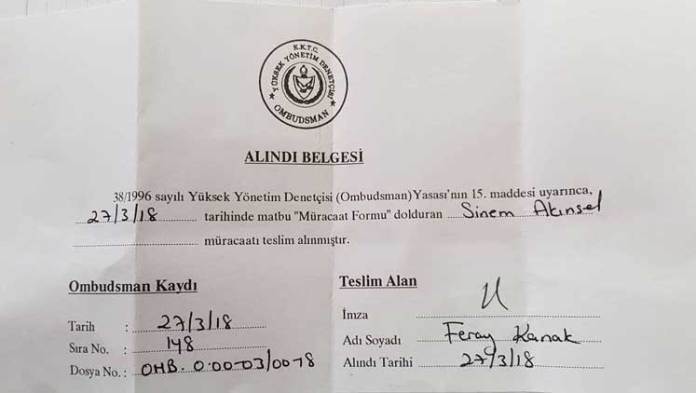 K.K.T.C.
YÜKSEK YÖNETİM DENETÇİSİ
OMBUDSMAN
ALINDI BELGESİ
38/1996 sayılı Yüksek Yönetim Denetçisi (Ombudsman) Yasası'nın 15. maddesi uyarınca,
27/3/18 tarihinde matbu "Müracaat Formu" dolduran Sinem Akınsel
müracaatı teslim alınmıştır.
Ombudsman Kaydı
Tarih : 27/3/18
Sıra No. : 148
Dosya No. : OMB. 0.00-03/00-18
Teslim Alan
İmza
Adı Soyadı Feray Kanak
Alındı Tarihi 27/3/18